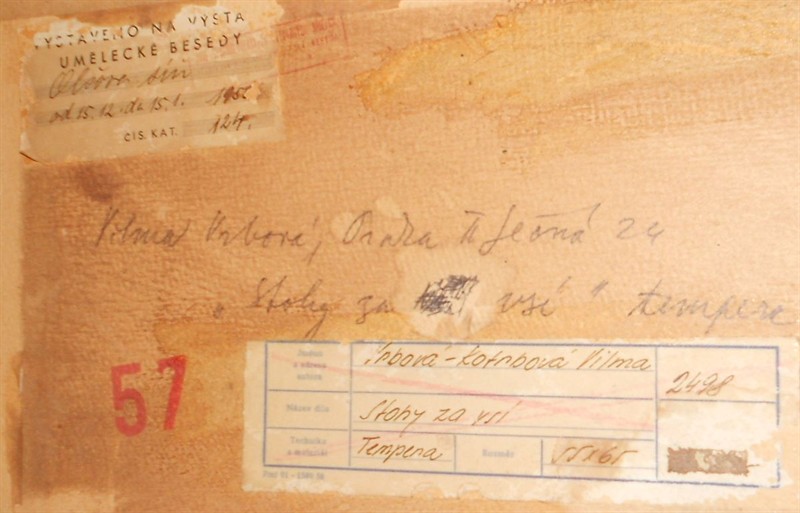 VYSTAVENO NA VÝSTA
UMĚLECKÉ BESEDY
síň
od 15.12. do 15.1. 195
ČÍS. KAT. 124.
Vilma Vrbová, Praha II Ječná 24
„Stohy za vsí" tempera
57
Jméno
a adresa
autora
Vrbová-Kotrbová Vilma
2498
Název díla
Stohy za vsí
Technika
a materiál
Tempera
Rozměr
55x65